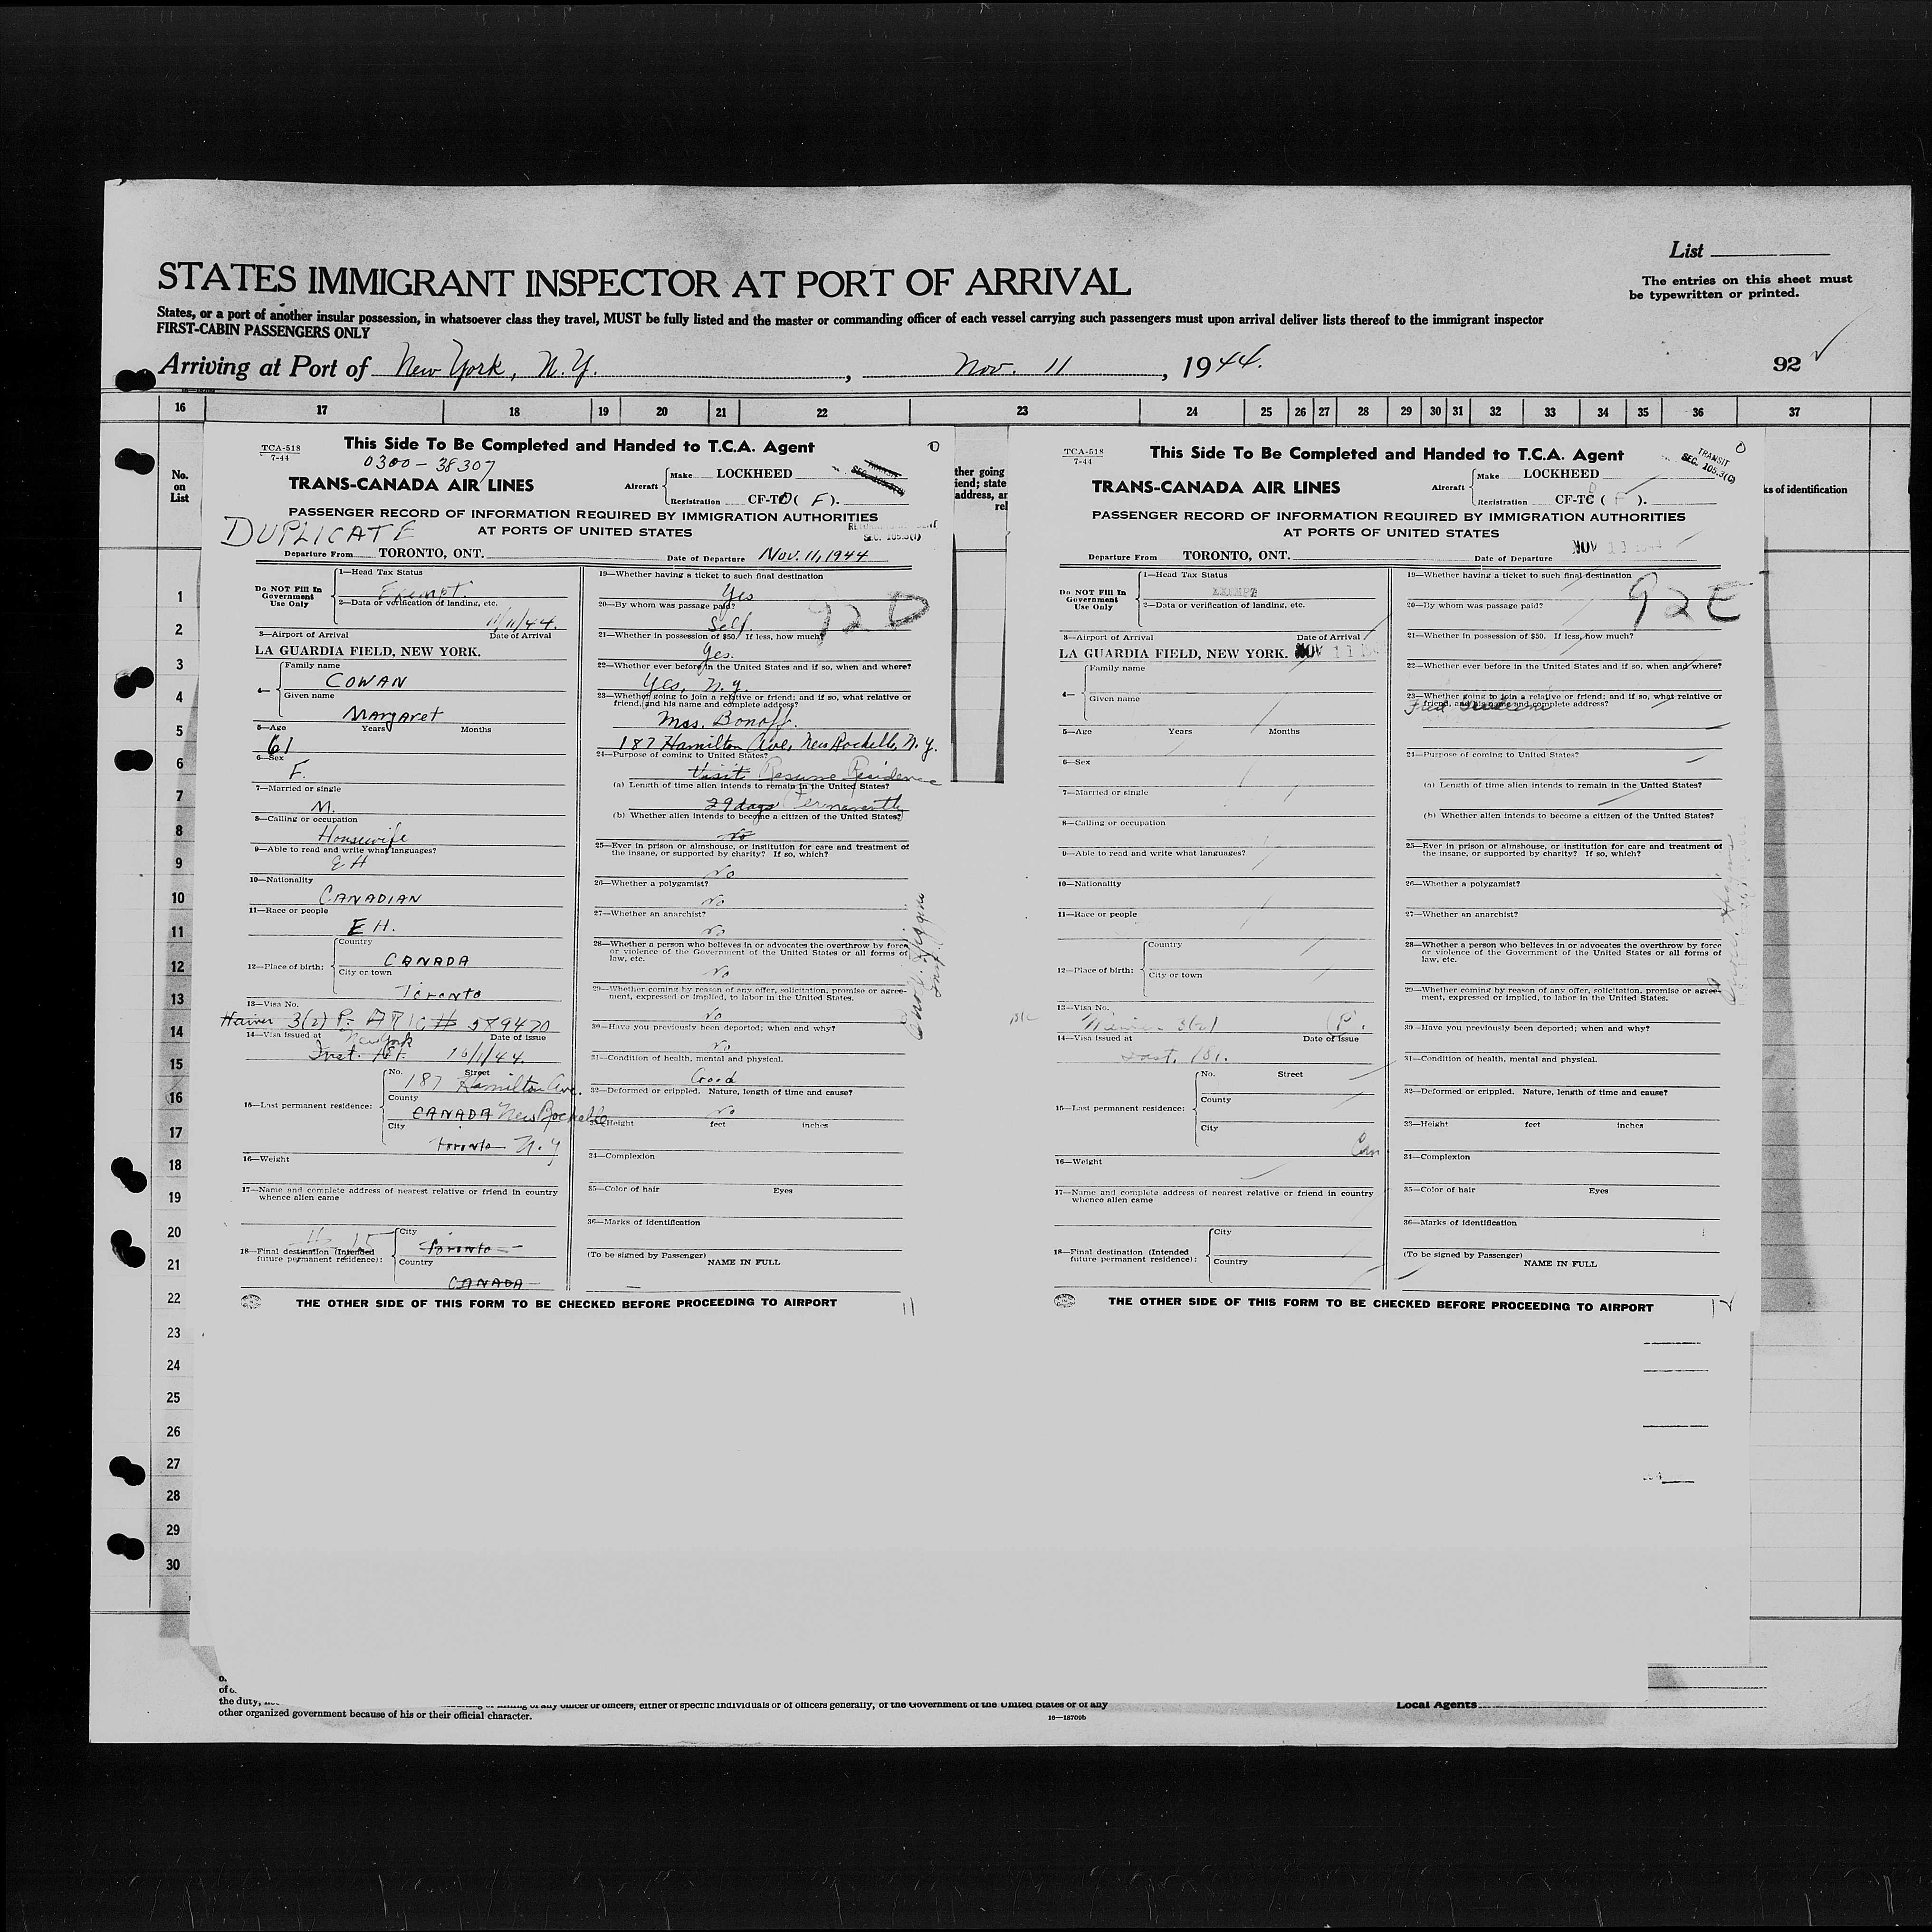 List
The entries on this sheet must
be typewritten or printed.
STATES IMMIGRANT INSPECTOR AT PORT OF ARRIVAL
States, or a port of another insular possession, in whatsoever class they travel, MUST be fully listed and the master or commanding officer of each vessel carrying such passengers must upon arrival deliver lists thereof to the immigrant inspector
FIRST-CABIN PASSENGERS ONLY
Arriving at Port of New York, N.Y., Nov. 11, 1944.
92
16 17 18 19 20 21 22 23 24 25 26 27 28 29 30 31 32 33 34 35 36 37
No.
on
List
1
2
3
4
5
6
7
8
9
10
11
12
13
14
15
16
17
18
19
20
21
22
23
24
25
26
27
28
29
30
TCA-518
7-44
This Side To Be Completed and Handed to T.C.A. Agent
0300-38307
TRANS-CANADA AIR LINES
Aircraft
Make LOCKHEED
Registration CF-TC ( F ).
PASSENGER RECORD OF INFORMATION REQUIRED BY IMMIGRATION AUTHORITIES
AT PORTS OF UNITED STATES
DUPLICATE
SEC. 105.3(1)
Departure From TORONTO, ONT.
Date of Departure Nov. 11, 1944
Do NOT Fill In
Government
Use Only
1—Head Tax Status
Exempt.
2—Data or verification of landing, etc.
11/11/44.
3—Airport of Arrival Date of Arrival
LA GUARDIA FIELD, NEW YORK.
4—
Family name
COWAN
Given name
Margaret
5—Age Years Months
61
6—Sex
F.
7—Married or single
M.
8—Calling or occupation
Housewife
9—Able to read and write what languages?
EH
10—Nationality
CANADIAN
11—Race or people
EH.
12—Place of birth:
Country
CANADA
City or town
Toronto
13—Visa No.
3(2) P. 589470
14—Visa issued at Date of issue
New York
15—Last permanent residence:
No. Street
187 Hamilton Ave.
County
CANADA New Rochelle
City
Toronto N.Y
16—Weight
17—Name and complete address of nearest relative or friend in country
whence alien came
18—Final destination (Intended
future permanent residence):
City
Toronto
Country
CANADA
19—Whether having a ticket to such final destination
Yes
20—By whom was passage paid?
Self
92 D
21—Whether in possession of $50. If less, how much?
Yes.
22—Whether ever before in the United States and if so, when and where?
Yes, N.Y.
23—Whether going to join a relative or friend; and if so, what relative or
friend, and his name and complete address?
Mrs. Bonoff.
187 Hamilton Ave, New Rochelle, N.Y.
24—Purpose of coming to United States?
Visit Resume Residence
(a) Length of time alien intends to remain in the United States?
29 days Permanently
(b) Whether alien intends to become a citizen of the United States?
No
25—Ever in prison or almshouse, or institution for care and treatment of
the insane, or supported by charity? If so, which?
No
26—Whether a polygamist?
No
27—Whether an anarchist?
No
28—Whether a person who believes in or advocates the overthrow by force
or violence of the Government of the United States or all forms of
law, etc.
No
29—Whether coming by reason of any offer, solicitation, promise or agree-
ment, expressed or implied, to labor in the United States.
No
30—Have you previously been deported; when and why?
No
31—Condition of health, mental and physical.
Good
32—Deformed or crippled. Nature, length of time and cause?
No
33—Height feet inches
34—Complexion
35—Color of hair Eyes
36—Marks of identification
(To be signed by Passenger)
NAME IN FULL
THE OTHER SIDE OF THIS FORM TO BE CHECKED BEFORE PROCEEDING TO AIRPORT
11
ther going
iend; state
address, an
rel
TCA-518
7-44
This Side To Be Completed and Handed to T.C.A. Agent
TRANSIT
SEC. 105.3(C)
TRANS-CANADA AIR LINES
Aircraft
Make LOCKHEED
Registration CF-TC ( F ).
PASSENGER RECORD OF INFORMATION REQUIRED BY IMMIGRATION AUTHORITIES
AT PORTS OF UNITED STATES
Departure From TORONTO, ONT.
Date of Departure NOV 11 1944
Do NOT Fill In
Government
Use Only
1—Head Tax Status
EXEMPT
2—Data or verification of landing, etc.
3—Airport of Arrival Date of Arrival
LA GUARDIA FIELD, NEW YORK. NOV 11 194
4—
Family name
Given name
5—Age Years Months
6—Sex
7—Married or single
8—Calling or occupation
9—Able to read and write what languages?
10—Nationality
11—Race or people
12—Place of birth:
Country
City or town
13—Visa No.
3(2) P.
14—Visa issued at Date of issue
15—Last permanent residence:
No. Street
County
City
16—Weight
17—Name and complete address of nearest relative or friend in country
whence alien came
18—Final destination (Intended
future permanent residence):
City
Country
19—Whether having a ticket to such final destination
20—By whom was passage paid?
92 E
21—Whether in possession of $50. If less, how much?
22—Whether ever before in the United States and if so, when and where?
23—Whether going to join a relative or friend; and if so, what relative or
friend, and his name and complete address?
24—Purpose of coming to United States?
(a) Length of time alien intends to remain in the United States?
(b) Whether alien intends to become a citizen of the United States?
25—Ever in prison or almshouse, or institution for care and treatment of
the insane, or supported by charity? If so, which?
26—Whether a polygamist?
27—Whether an anarchist?
28—Whether a person who believes in or advocates the overthrow by force
or violence of the Government of the United States or all forms of
law, etc.
29—Whether coming by reason of any offer, solicitation, promise or agree-
ment, expressed or implied, to labor in the United States.
30—Have you previously been deported; when and why?
31—Condition of health, mental and physical.
32—Deformed or crippled. Nature, length of time and cause?
33—Height feet inches
34—Complexion
35—Color of hair Eyes
36—Marks of identification
(To be signed by Passenger)
NAME IN FULL
THE OTHER SIDE OF THIS FORM TO BE CHECKED BEFORE PROCEEDING TO AIRPORT
12
ks of identification
the duty,
of any officer or officers, either of specific individuals or of officers generally, of the Government of the United States or of any
other organized government because of his or their official character.
16—18709b
Local Agents